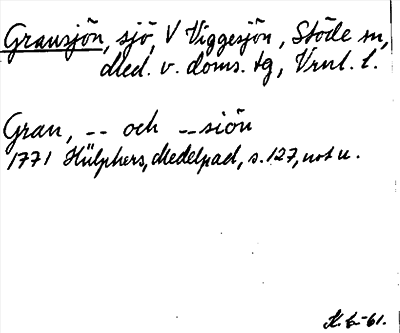 Gransjön, sjö, V Viggesjön, Stöde sn,
Med. v. doms. tg, Vrnl. l.
Gran, -- och --siön
1771 Hülphers, Medelpad, s. 127, not u.
K. G-61.